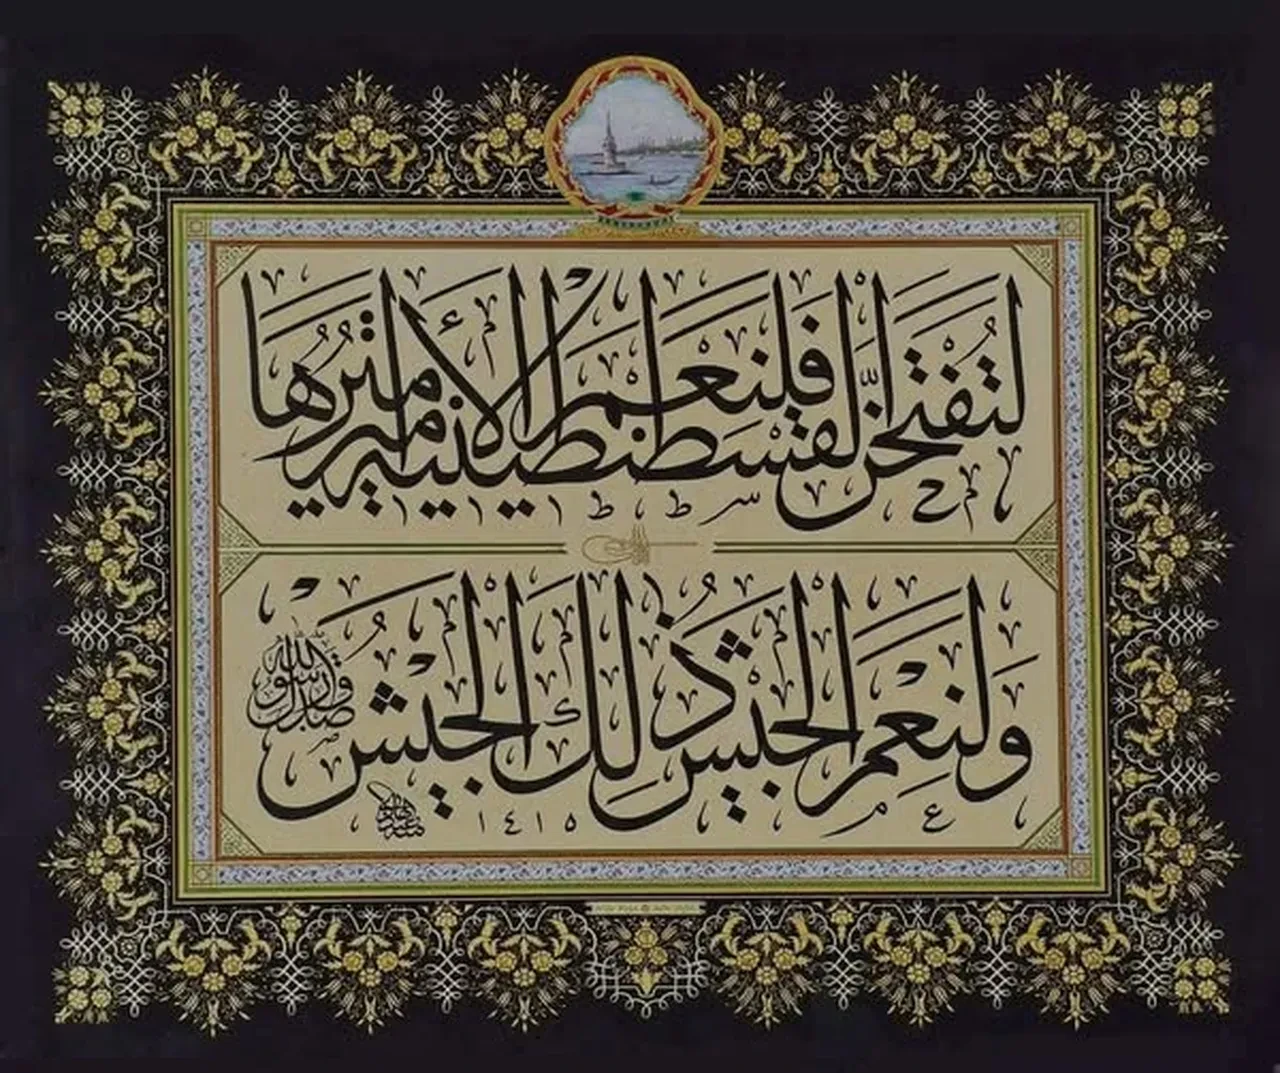 لَتُفْتَحَنَّ الْقُسْطَنْطِينِيَّةُ فَلَنِعْمَ الْأَمِيرُ أَمِيرُهَا
وَلَنِعْمَ الْجَيْشُ ذَلِكَ الْجَيْشُ
صدق رسول الله
١٤١٥